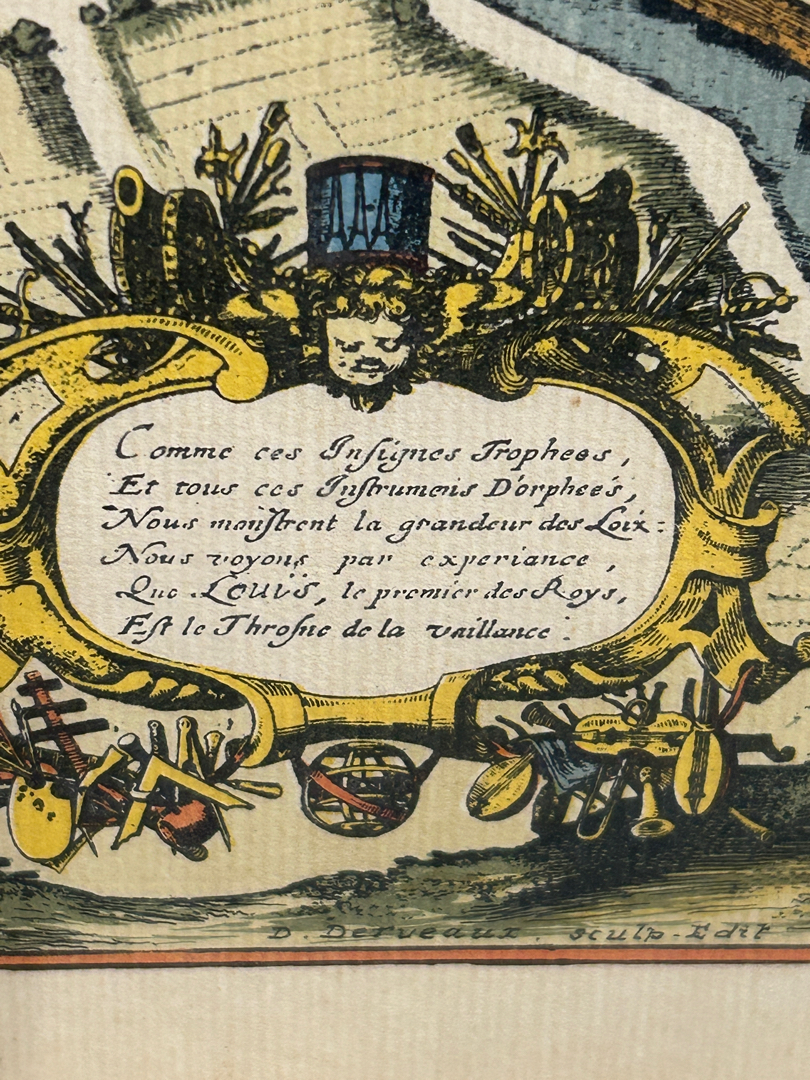 Comme ces Insignes Trophees,
Et tous ces Instrumens D'orpheés,
Nous monstrent la grandeur des Loix:
Nous voyons par experiance,
Que LOUIS, le premier des Roys,
Est le Throsne de la vaillance:
D. Derveaux. sculp-Edit